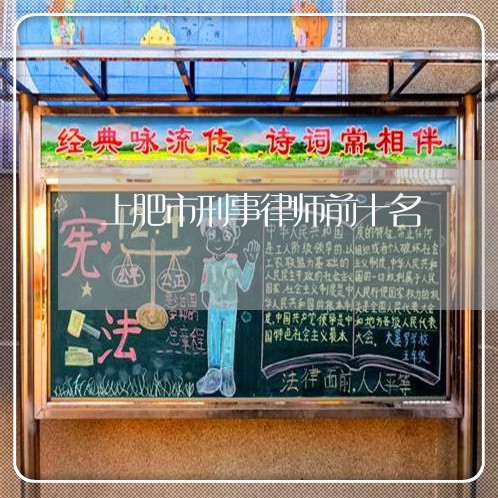 经典咏流传 诗词常相伴
上肥市刑事律师前十名
宪法
公平 公正
总章程
中华人民共和国
是工人阶级领导的,以
工农联盟为基础的
人民民主专政的社会主义
国家,社会主义制度是中
华人民共和国的根本制
度,中国共产党领导是中
国特色社会主义最本
质的特征,禁止任何
组织或者个人破坏社会
主义制度,中华人民共和
国的一切权利属于人民,
人民行使国家权力的机
关是全国人民代表大会
和地方各级人民代表
大会。
五年级
法律面前,人人平等